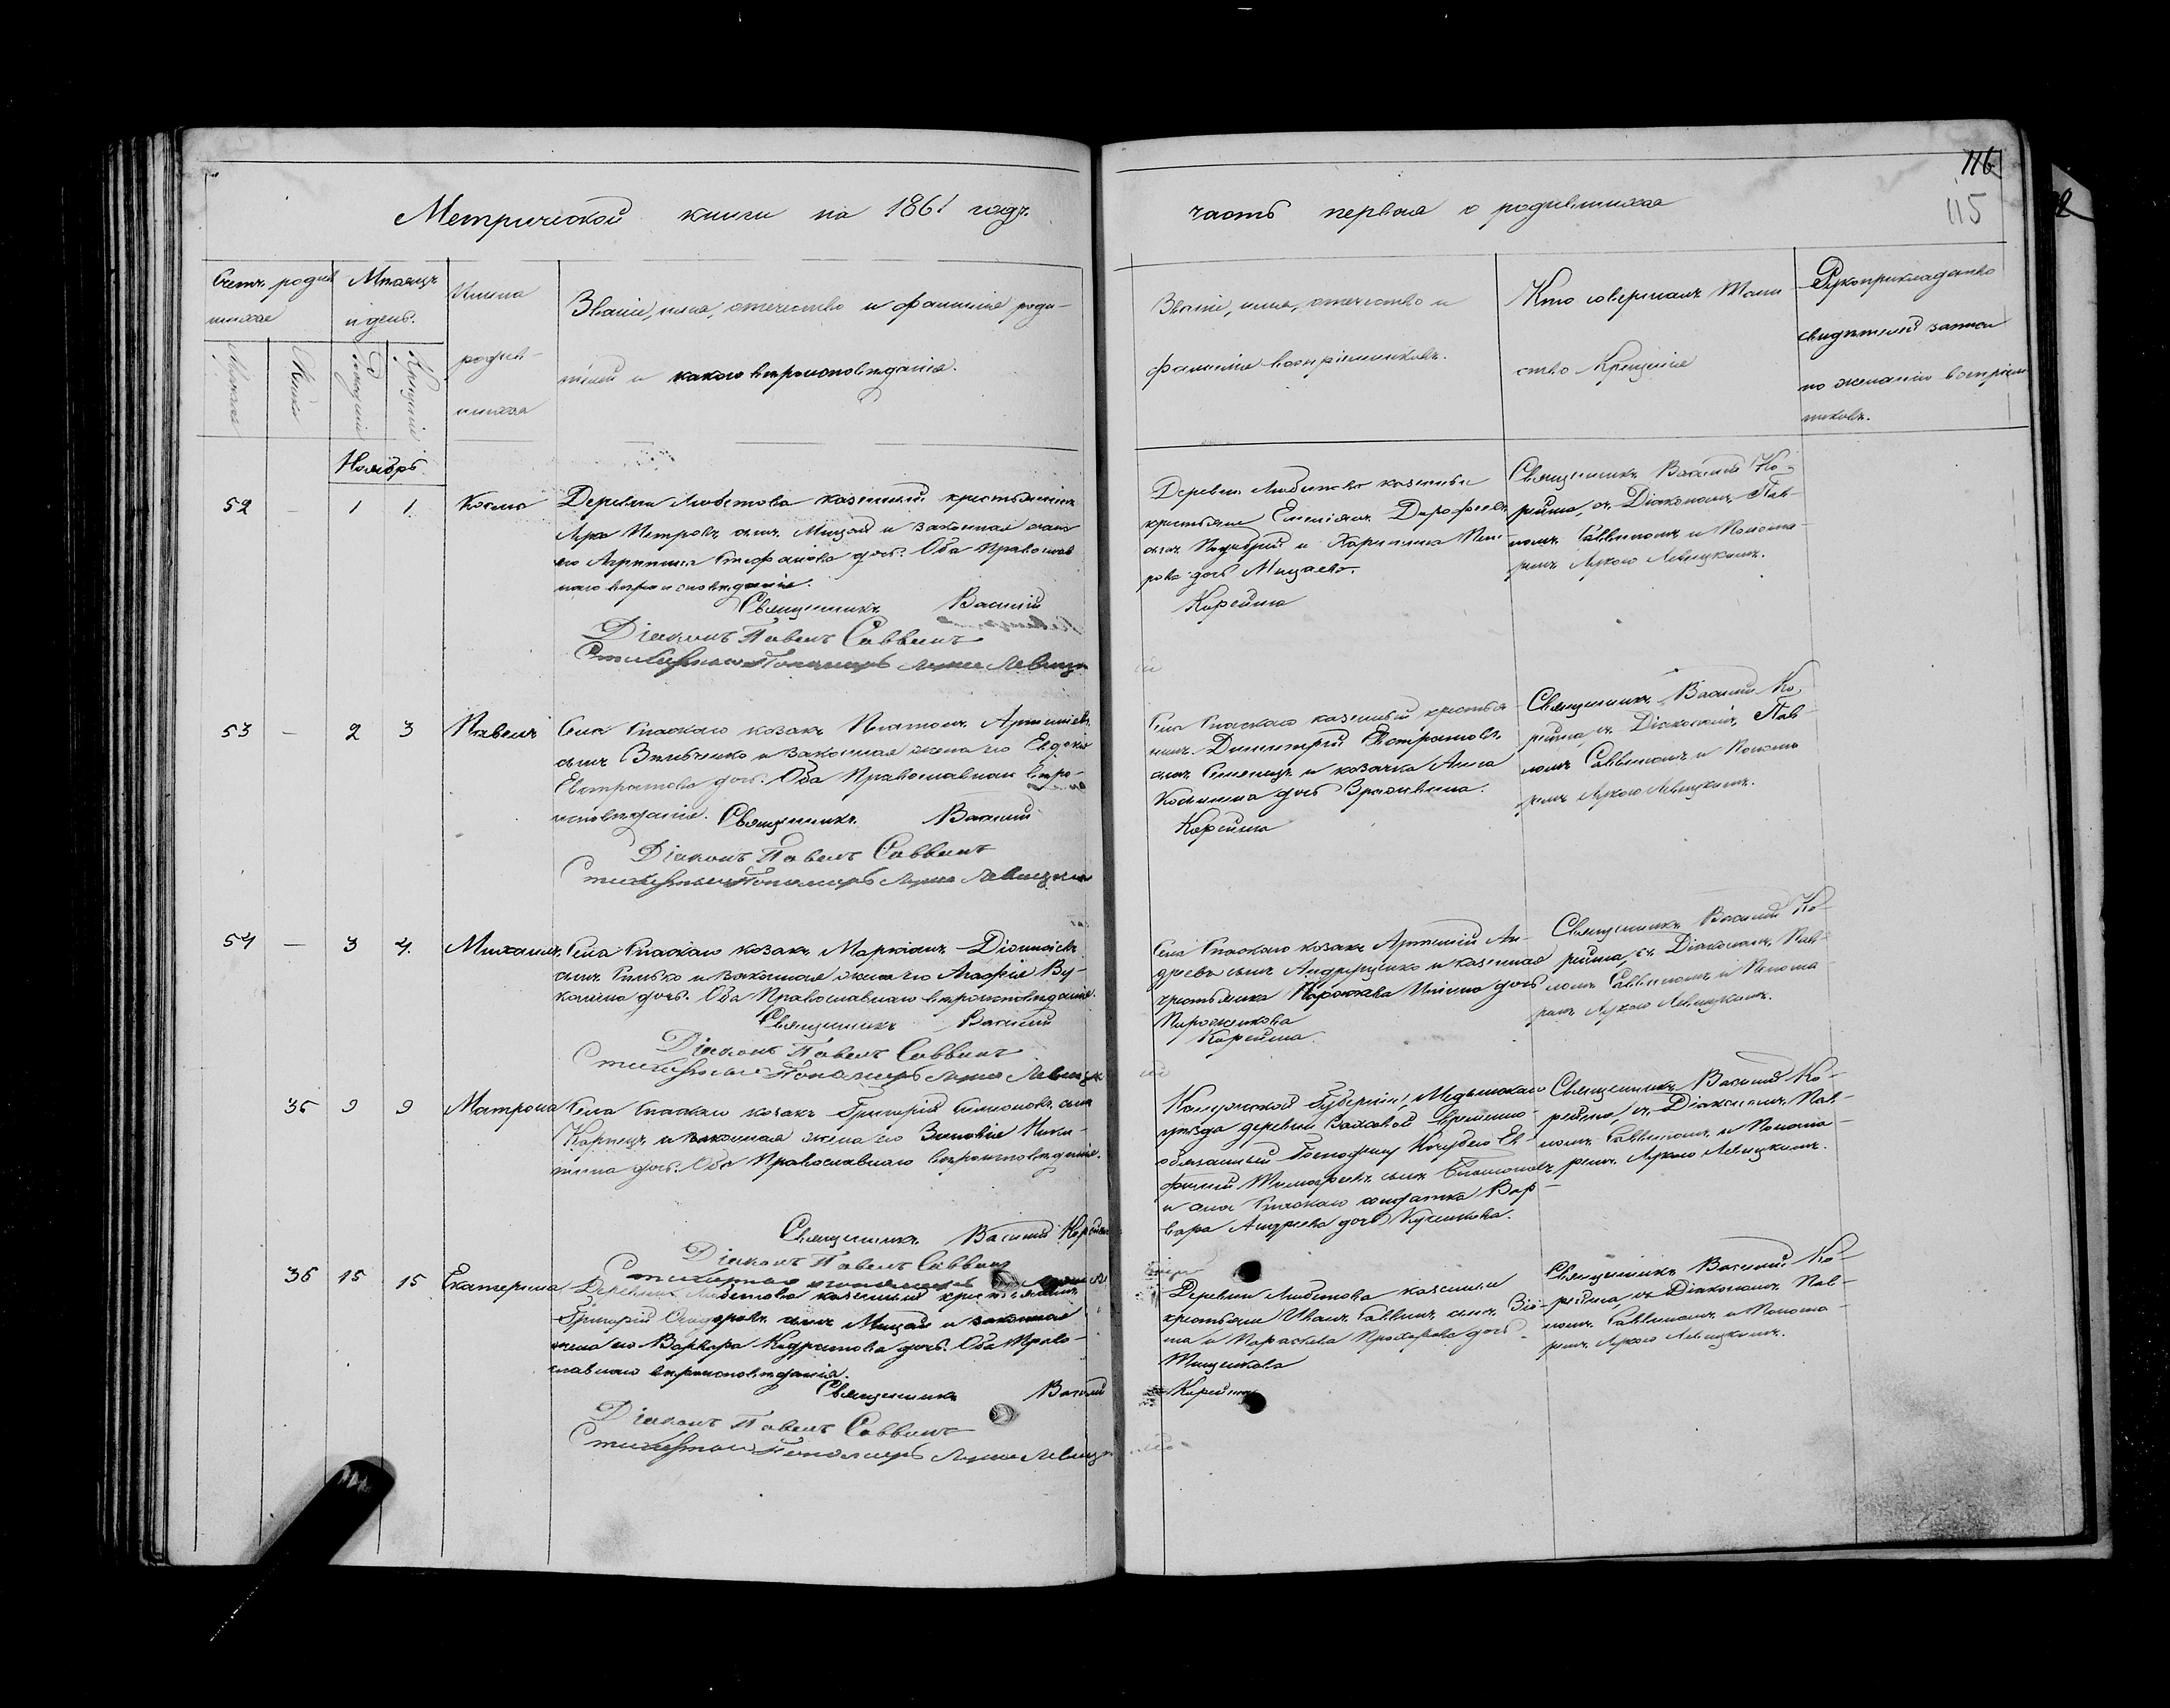 116
115
Метрической книги на 1861 годъ.
часть первая о родившихся
Счетъ родив
шихся
Мѣсяцъ
и день.
Имена
родив-
шихся
Званіе, имя, отчество и фамилія роди-
телей и какого вѣроисповѣданія.
Званіе, имя, отчество и
фамилія воспріемниковъ.
Кто совершалъ Таин
ство Крещенія
Рукоприкладство
свидѣтелей записи
по желанію воспріем
никовъ.
Рожденія
Крещенія
Ноябрь
52 – 1 1.
Деревни Любитова казенный крестьянинъ
Петровъ сынъ Мицай и законная жена
его Агрипина Стефанова дочь. Оба Православ
наго вѣроисповѣданія.
Священникъ Василій
Діаконъ Павелъ Саввинъ
Стихарный Пономарь Лука Левицк
Деревни Любитова казенные
крестьяне Емеліянъ Дорофеевъ
сынъ и
рова дочь Мицаева.
Корейша
Священникъ Василій Ко-
рейша, съ Діакономъ Пав-
ломъ Саввинымъ и Понома-
ремъ Лукою Левицкимъ.
53 – 2 3 Павелъ
Села Спаскаго козакъ Платонъ Артемьевъ
сынъ и законная жена его Евдокія
Евстратова дочь. Оба Православнаго вѣро-
исповѣданія. Священникъ Василій
Діаконъ Павелъ Саввинъ
Стихарный Пономарь Лука Левицкій
Села Спаскаго казенный крестья
нинъ Димитрій Евстратовъ
сынъ и козачка Анна
Козьмина дочь
Корейша
Священникъ Василій Ко-
рейша, съ Діакономъ Пав-
ломъ Саввинымъ и Понома
ремъ Лукою Левицкимъ.
54 – 3 4. Михаилъ
Села Спаскаго козакъ Маркіанъ Діонисіевъ
сынъ и законная жена его Агафія Ву-
колина дочь. Оба Православнаго вѣроисповѣданія.
Священникъ Василій
Діаконъ Павелъ Саввинъ
Стихарный Пономарь Лука Левицк
Села Спаскаго козакъ Артемій Ан-
дреевъ сынъ Андрущенко и казенная
крестьянка дочь
Пироженкова
Корейша.
Священникъ Василій Ко-
рейша, съ Діакономъ Пав-
ломъ Саввинымъ и Понома-
ремъ Лукою Левицкимъ.
35 9 9 Матрона
Села Спаскаго козакъ Григорій Симоновъ сынъ
Карпецъ и законная жена его Зиновія Ники-
тина дочь. Оба Православнаго вѣроисповѣданія.
Священникъ Василій Корейша
Діаконъ Павелъ Саввинъ
Стихарный пономарь
Калужской Губерніи, Медынскаго
уѣзда деревни временно-
обязанный Господину Кочубею Ев
фимій Тимофеевъ сынъ
и села Спаскаго солдатка Вар-
вара Андреева дочь
Священникъ Василій Ко-
рейша, съ Діакономъ Пав-
ломъ Саввинымъ и Понома-
ремъ Лукою Левицкимъ.
36 15 15 Екатерина
Деревни Любитова казенный крестьянинъ
Григорій сынъ Мицай и законная
жена его Варвара Кодратова дочь. Оба Право-
славнаго вѣроисповѣданія.
Священникъ Василій
Діаконъ Павелъ Саввинъ
Стихарный Пономарь Лука Левицк
Деревни Любитова казенные
крестьяне Иванъ Саввинъ сынъ
и Параскева Прохорова дочь
Тищенкова
Корейша
Священникъ Василій Ко-
рейша, съ Діакономъ Пав-
ломъ Саввинымъ и Понома-
ремъ Лукою Левицкимъ.